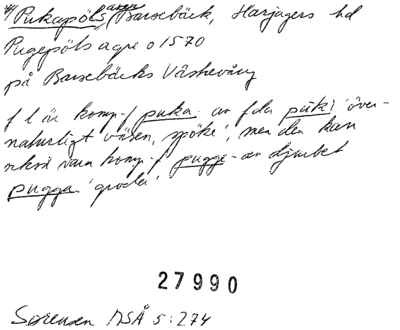 Pukapöls, Barsebäck, Harjagers hd
Pugepöls agre o 1570
på Barsebäcks Västervång
f l är komp. f puka- av fda puki 'över-
naturligt väsen, spöke', men den kan
också vara komp. f pugge- av djurbet
pugga 'groda'.
27990
Sørensen DSÅ 5:274